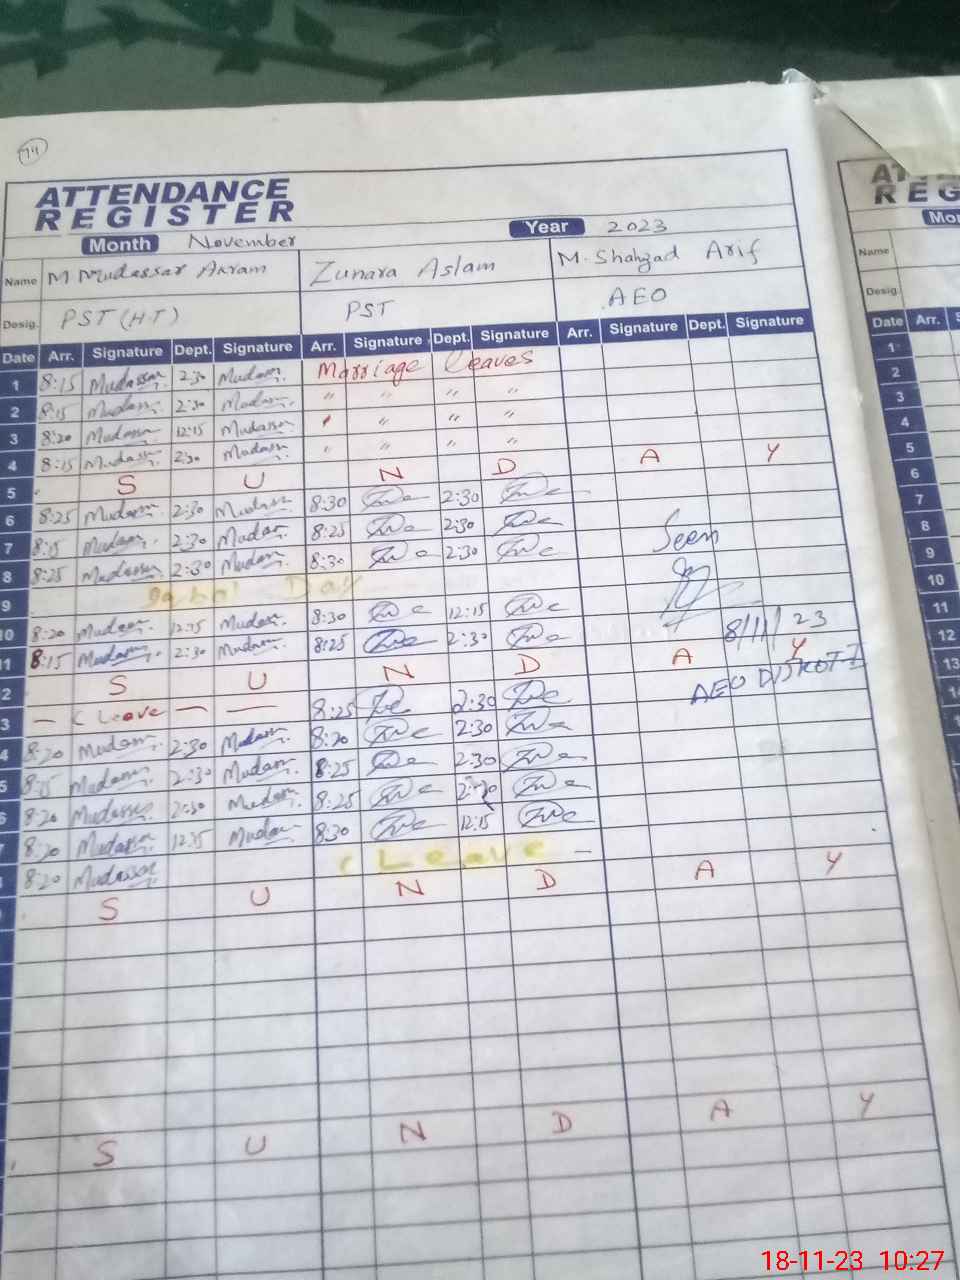 74
ATTENDANCE
REGISTER
Month November Year 2023
Name M Mudassar Akram Zunara Aslam M. Shahzad Arif
Desig. PST (H.T) PST AEO
Date Arr. Signature Dept. Signature Arr. Signature Dept. Signature Arr. Signature Dept. Signature
1 8:15 Mudassar 2:30 Mudassar Marriage Leaves
2 8:15 Mudassar 2:30 Mudassar " " " "
3 8:20 Mudassar 12:15 Mudassar " " "
4 8:15 Mudassar 2:30 Mudassar " " " "
5 S U N D A Y
6 8:25 Mudassar 2:30 Mudassar 8:30 2:30
7 8:15 Mudassar 2:30 Mudassar 8:25 2:30
8 8:25 Mudassar 2:30 Mudassar 8:30 2:30
Seen
9 Iqbal Day
10 8:20 Mudassar 12:15 Mudassar 8:30 12:15
8/11/23
11 8:15 Mudassar 2:30 Mudassar 8:25 2:30
2 S U N D A Y
AEO
3 C Leave 8:25 2:30
4 8:20 Mudassar 2:30 Mudassar 8:20 2:30
5 8:15 Mudassar 2:30 Mudassar 8:25 2:30
6 8:20 Mudassar 2:30 Mudassar 8:25 2:30
8:20 Mudassar 12:15 Mudassar 8:30 12:15
8:20 Mudassar C Leave
S U N D A Y
S U N D A Y
AT
REG
Mo
Name
Desig.
Date Arr. S
1
2
3
4
5
6
7
8
9
10
11
12
13
14
18-11-23 10:27